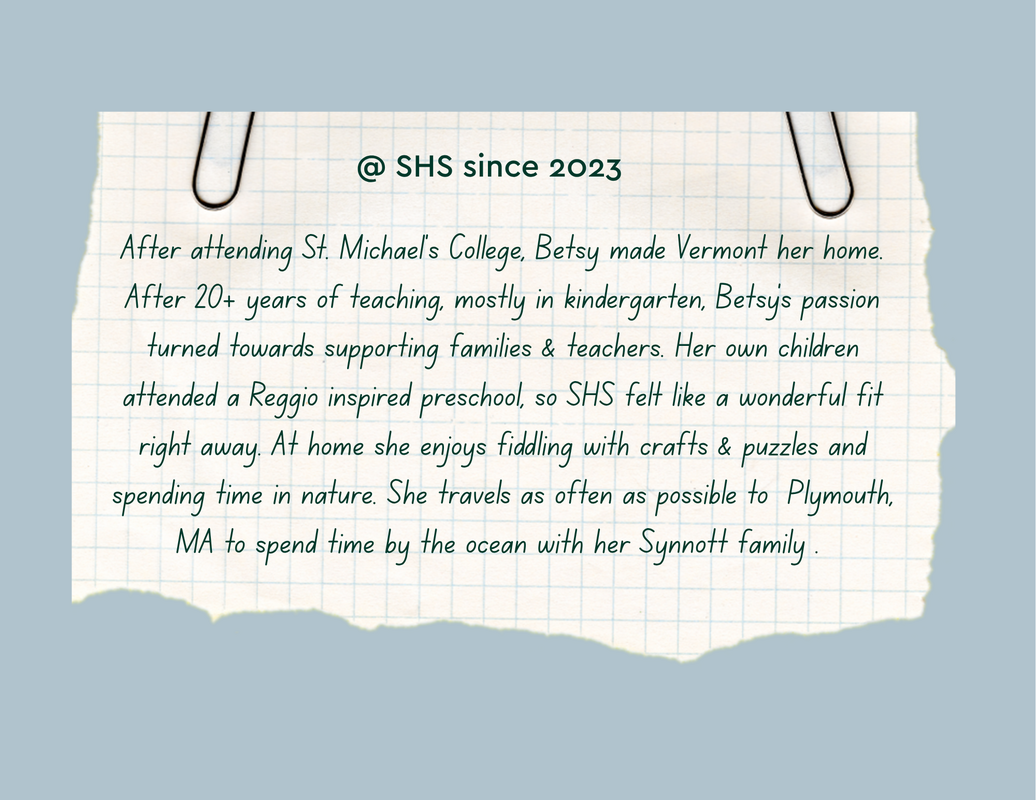 @ SHS since 2023
After attending St. Michael's College, Betsy made Vermont her home.
After 20+ years of teaching, mostly in kindergarten, Betsy's passion
turned towards supporting families & teachers. Her own children
attended a Reggio inspired preschool, so SHS felt like a wonderful fit
right away. At home she enjoys fiddling with crafts & puzzles and
spending time in nature. She travels as often as possible to  Plymouth,
MA to spend time by the ocean with her Synnott family .